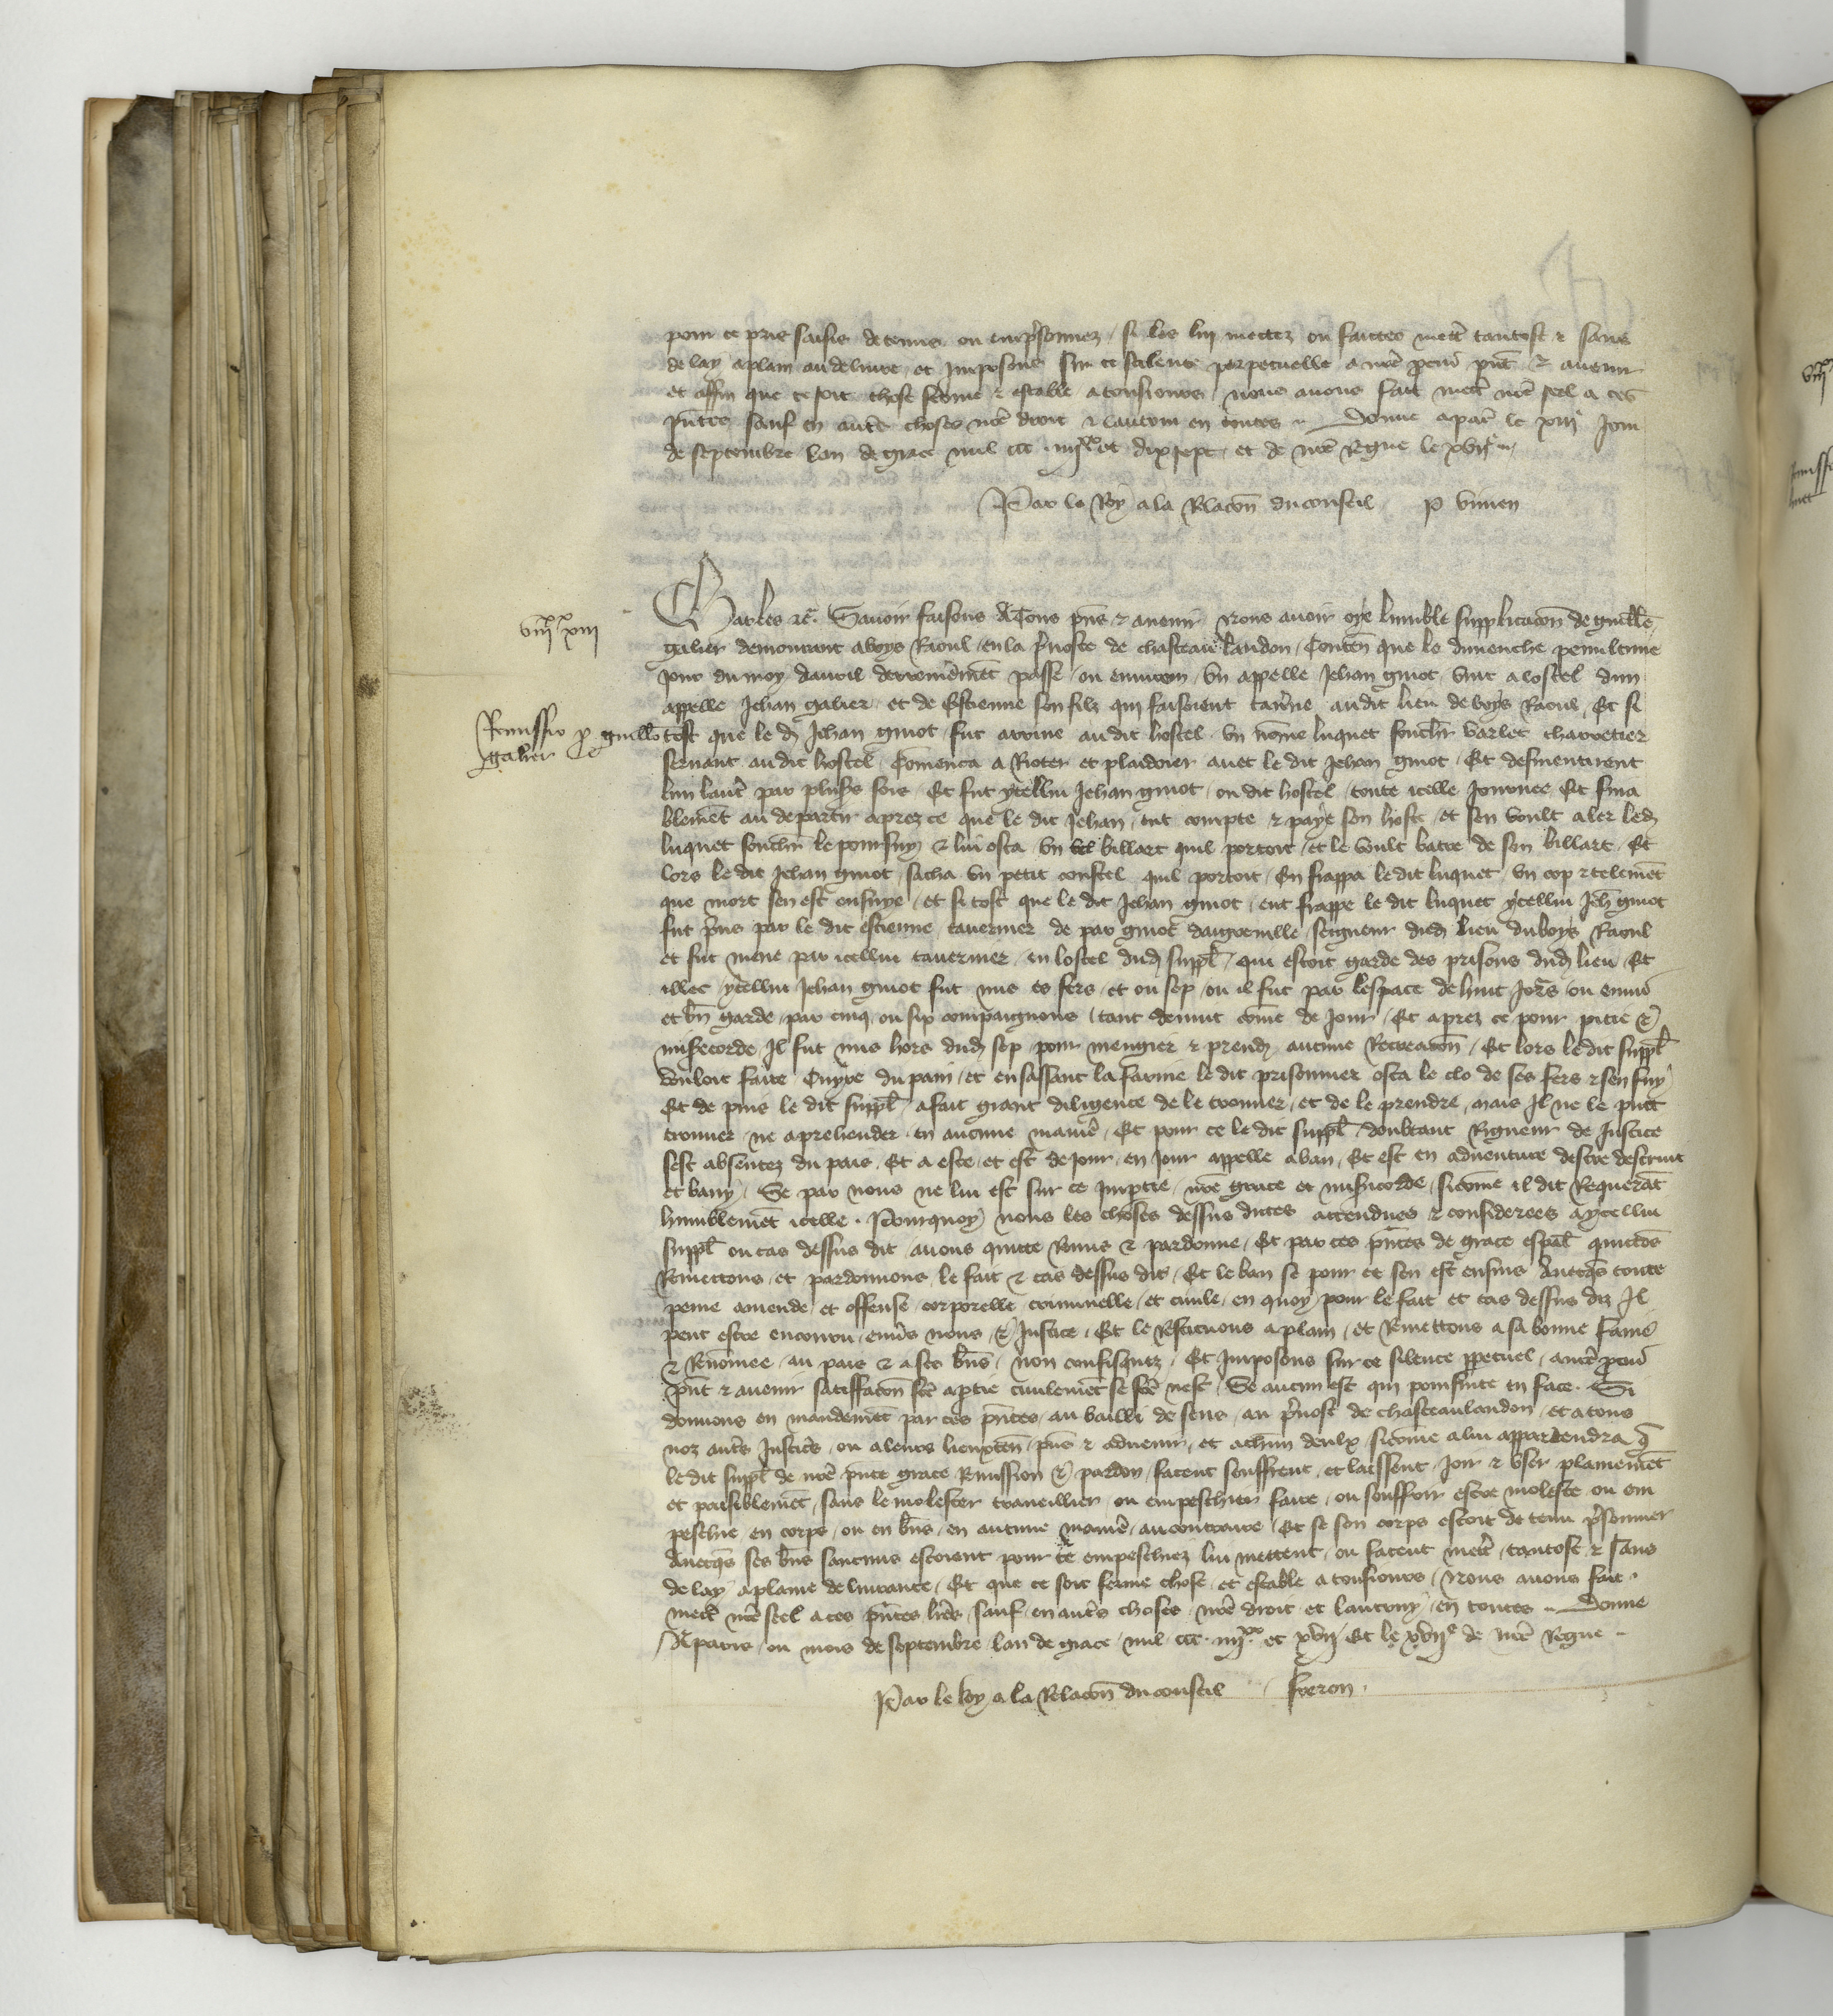 pour ce pris saisis detenus ou emprisonnez / si les lui mettez ou faictes mettre tantost & sans
delay a plain au delivre / et Imposons sur ce silence perpetuelle a nostre procur present & avenir
et affin que ce soit chose ferme & estable a tousiours / nous avons fait mettre nostre seel a ces
presentes sauf en autre choses nostre droit & lautrui en toutes .. Donne a paris le xiiije Jour
de septembre lan de grace mil ccc iiijxx et dixsept / et de nostre Regne le xvije
Par le Roy a la Relacion du conseil P vinien
viijxx xiii
Charles &c. Savoir faisons A Tous presens & avenir / Nous avoir oye lumble supplicacion de guillemin
galier demourant a boys Raoul / en la prevoste de chasteau landon / Contenant que le dimenche penultime
Jour du moy davril derrenierement passe / ou environ / Un appelle / Jehan guiot / vint a lostel dun
appelle Jehan galier / et de Estienne son filz qui faisoient taverne audit lieu de boys Raoul / Et si
Remissio pro guillo
galier
tost que led Jehan guiot / fut arrive au dit hostel / Un nomme luquet varlet charretier
servant audit hostel / Commenca a Rioter et plaidoier avec le dit Jehan guiot / Et desmentirent
lun lautre par plusieurs fois / Et fut ycellui Jehan guiot / ou dit hostel / toute icelle Journee Et fina
blement au departir aprez ce que le dit Jehan / eut compte & paye son hoste / et sen voult aler led
luquet le poursuy & lui osta un billart quil portoit / et le voult batre de son billart / Et
lors le dit Jehan guiot / sacha un petit coustel quil portoit / En frappa le dit luquet / un cop & telement
que mort sen est ensuye / et si tost que le dit Jehan guiot / eut frappe le dit luquet ycellui Jehan guiot
fut prins par le dit estienne tavernier de par guiot daigreville / seigneur dud lieu du boys Raoul
et fut mene par icellui tavernier / en lostel dud suppliant / qui estoit garde des prisons dud lieu / Et
illec / ycellui Jehan guiot fut mis es fers / et ou sep / ou il fut par lespace de huit Jours / ou environ
et bien garde / par cinq ou six compaignons / tant de nuit comme de Jour / Et aprez ce pour pitie &
misericorde / Il fut mis hors dud sep pour mengier & prendre aucune Recreacion / Et lors le dit suppliant
vouloit faire Cuyre du pain / et en sassant la farine le dit prisonnier osta le clo de ses fers & sen fuy
Et de puis le dit suppliant / a fait grant diligence de le trouver / et de le prendre / mais Il ne le puet
trouver / ne aprehender / en aucune maniere / Et pour ce le dit suppliant / doubtant Rigueur de Justice
sest absentez du pais / Et a este / et est de Jour / en Jour appelle a ban / Et est en adventure destre destruit
et bany / Se par nous ne lui est sur ce Impartie / nostre grace et misericorde / si comme il dit Requerant
humblement icelle . Pourquoy / nous les choses dessus dites / attendues & considerees a ycellui
suppliant ou cas dessus dit / avons quitte Remis & pardonne / Et par ces presentes de grace especial quittons
Remettons / et pardonnons / le fait & cas dessus dit / Et le ban se pour ce sen est ensuis avecques toute
peine amende / et offense / corporelle / criminelle / et civile / en quoy / pour le fait et cas dessus diz Il
peut estre encouru / envers nous / & Justice / Et le Restituons a plain / et Remettons a sa bonne fame
& Renommee / au pais & a ses biens / non confisquez / Et Imposons sur ce silence perpetuel / a nostre procureur
present & avenir satiffacion faicte a partie civilement se faicte nest / Se aucun est qui poursuite en face . Si
donnons en mandement par ces presentes / au bailli de sens / au prevost de chasteaulandon / et a tous
noz autres Justiciers / ou a leurs lieuxtenans / presens & advenir / et a chascun deulx / si comme a lui appartendra que
le dit suppliant de nostre presente grace Remission & pardon / facent seuffrent / et laissent / Joir & user plainement
et paisiblement / sans le molester travaillier ou empeschier faire / ou souffrir estre moleste / ou em
peschie en corps / ou en biens / en aucune maniere / au contraire / Et se son corps estoit detenu prisonnier
avecques ses biens saucuns estoient pour ce empeschiez lui mettent / ou facent mettre / tantost & sans
delay / a plaine delivrance / Et que ce soit ferme chose / et estable a tousiours / Nous avons fait .
mettre nostre seel a ces presentes lettres sauf en autres choses / nostre droit / et lautruy / en toutes .. Donne
A paris / ou mois de septembre lan de grace / mil ccc iiijxx et xvij / Et le xvije de nostre Regne ..
Par le Roy a la Relacion du conseil freron .